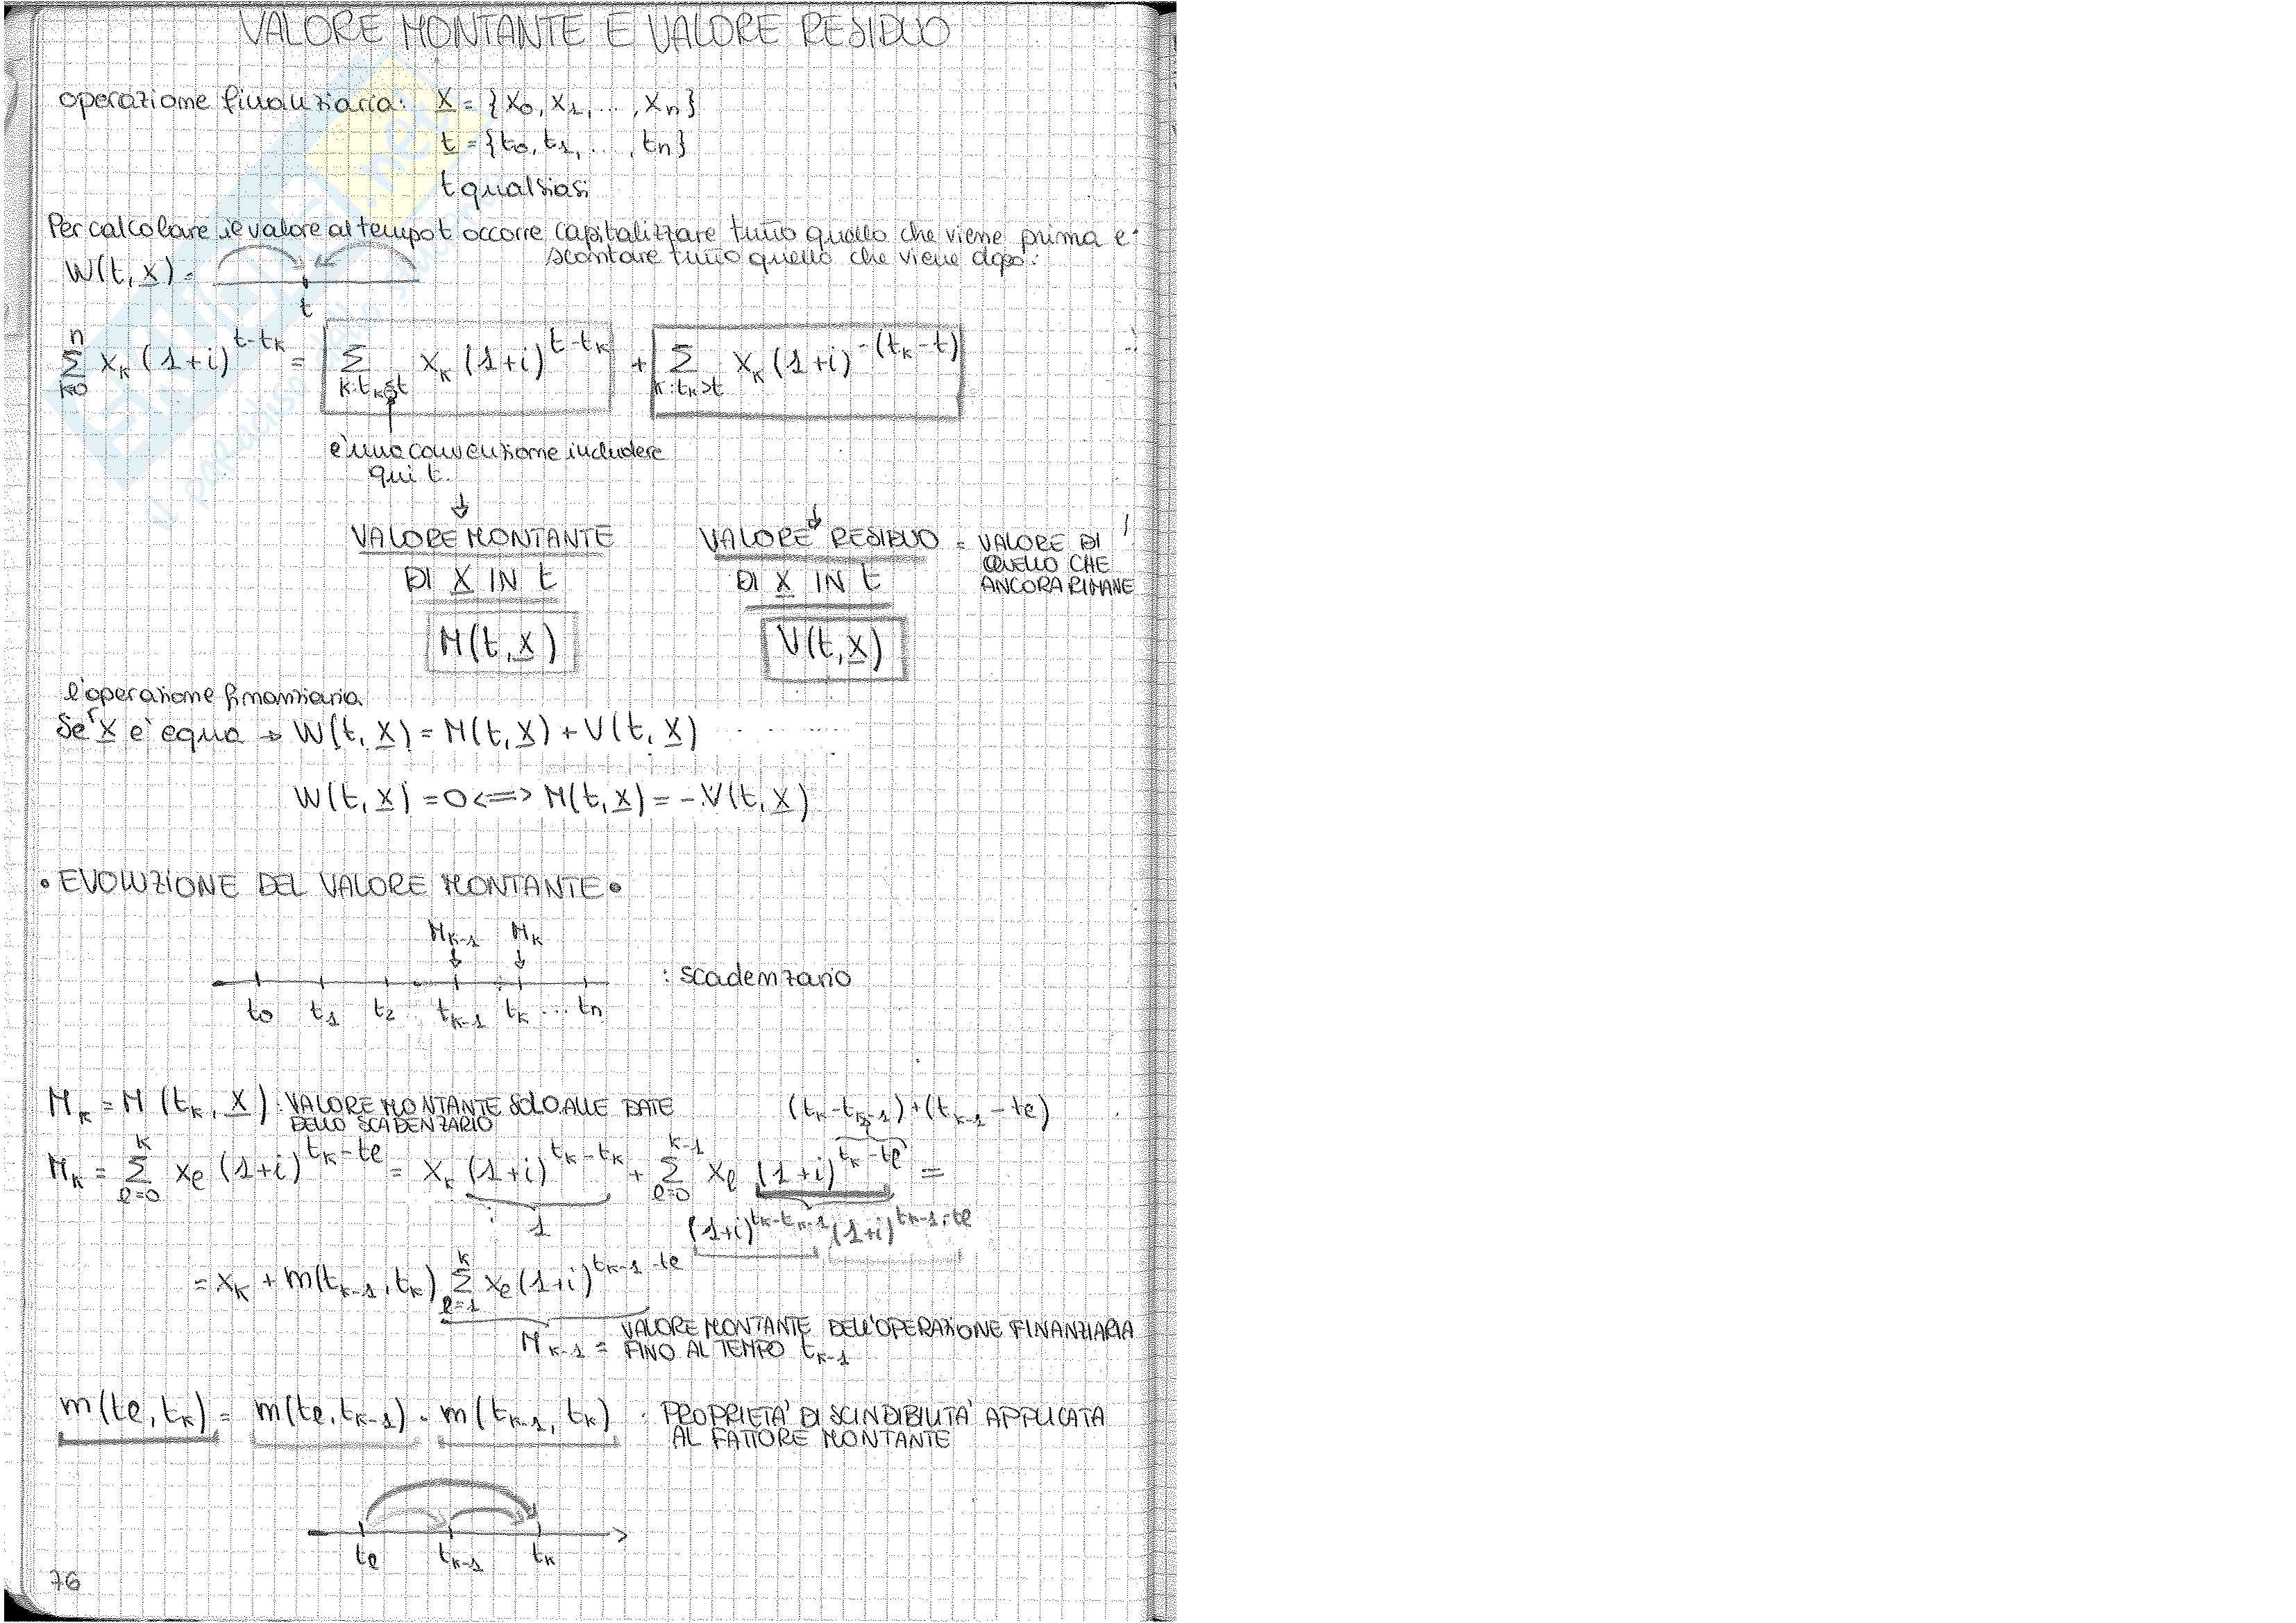 VALORE MONTANTE E VALORE RESIDUO
operazione finanziaria: x = {x₀, x₁, ..., xₙ}
t = {t₀, t₁, ..., tₙ}
t qualsiasi
Per calcolare il valore al tempo t occorre capitalizzare tutto quello che viene prima e
scontare tutto quello che viene dopo:
W(t, x) =
t
n
∑ xₖ (1+i)^(t-tₖ) = ∑ xₖ (1+i)^(t-tₖ) + ∑ xₖ (1+i)^(-(tₖ-t))
k=0 k:tₖ≤t k:tₖ>t
è una convenzione includere
qui t.
VALORE MONTANTE VALORE RESIDUO = VALORE DI
DI x IN t DI x IN t QUELLO CHE
ANCORA RIMANE
M(t, x) V(t, x)
l'operazione finanziaria
Se x è equa → W(t, x) = M(t, x) + V(t, x)
W(t, x) = 0 <=> M(t, x) = - V(t, x)
• EVOLUZIONE DEL VALORE MONTANTE •
Mₖ₋₁ Mₖ
: scadenzario
t₀ t₁ t₂ tₖ₋₁ tₖ ... tₙ
Mₖ = M (tₖ, x) : VALORE MONTANTE SOLO ALLE DATE (tₖ-tₖ₋₁)+(tₖ₋₁-tℓ)
DELLO SCADENZARIO
k k-1
Mₖ = ∑ xℓ (1+i)^(tₖ-tℓ) = xₖ (1+i)^(tₖ-tₖ) + ∑ xℓ (1+i)^(tₖ-tℓ) =
ℓ=0 ℓ=0
1 (1+i)^(tₖ-tₖ₋₁) (1+i)^(tₖ₋₁-tℓ)
k
= xₖ + m(tₖ₋₁, tₖ) ∑ xℓ (1+i)^(tₖ₋₁-tℓ)
ℓ=1
Mₖ₋₁ = VALORE MONTANTE DELL'OPERAZIONE FINANZIARIA
FINO AL TEMPO tₖ₋₁
m(tℓ, tₖ) = m(tℓ, tₖ₋₁) · m(tₖ₋₁, tₖ) : PROPRIETA' DI SCINDIBILITA' APPLICATA
AL FATTORE MONTANTE
tℓ tₖ₋₁ tₖ
76